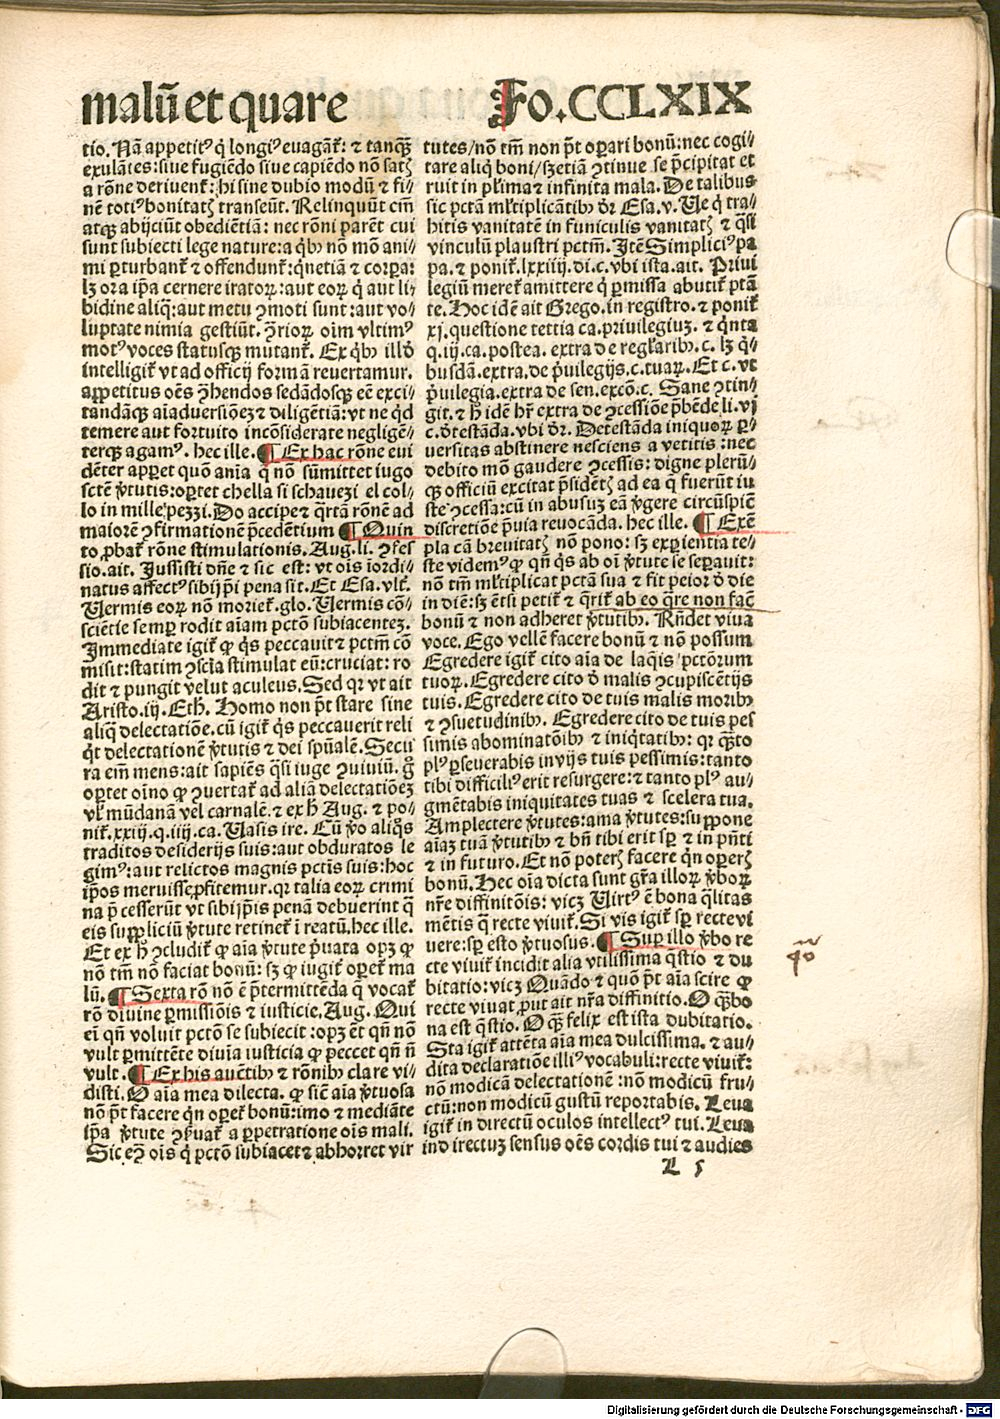 malū et quare
Fo.CCLXIX
tio. Nā appetitꝰ q̄ longiꝰ euagant̄: ⁊ tanqꝫ
exulātes: siue fugiēdo siue capiēdo nō satꝭ
a rōne deriuent̄: hi sine dubio modū ⁊ fi⸗
nē totiꝰ bonitatꝭ transeūt. Relinquūt em̄
atqꝫ abijciūt obediētiā: nec rōni parēt cui
sunt subiecti lege nature: a qꝰbꝰ nō mō ani⸗
mi ꝑturbant̄ ⁊ offendunt̄: q̄netiā ⁊ corꝑa:
lꝫ ora ip̄a cernere iratoꝝ: aut eoꝝ q̄ aut li⸗
bidine aliq̄: aut metu ꝯmoti sunt: aut vo⸗
luptate nimia gestiūt. ꝯrioꝝ oīm vltimꝰ
motꝰ voces statusqꝫ mutant̄. Ex qꝰbꝰ illō
intelligit̄ vt ad officij formā reuertamur.
appetitus oēs ꝯhendos sedādosqꝫ eē exci⸗
tandāqꝫ aīaduersiōeꝫ ⁊ diligētiā: vt ne qꝰd
temere aut fortuito incōsiderate negligē⸗
terqꝫ agamꝰ. hec ille. ¶ Ex hac rōne eui
dēter apꝑet quō anīa q̄ nō sūmittet iugo
sctē v̄tutis: oꝑtet chella si schauezi el col⸗
lo in mille pezzi. Do accipe ⁊ qꝰrtā rōnē ad
maiorē ꝯfirmationē p̄cedētium ¶ Quin
to ꝓbat̄ rōne stimulationis. Aug. li. ꝯfes
sio. ait. Jussisti dn̄e ⁊ sic est: vt oīs iordi⸗
natus affectꝰ sibi ip̄i pena sit. Et Esa. vlt̄.
Vermis eoꝝ nō moriet̄. glo. Vermis cō⸗
sciētie semꝑ rodit aīam pctō subiacenteꝫ.
Jmmediate igit̄ ꝙ qꝰs peccauit ⁊ pctm̄ cō
misit: statim ꝯscīa stimulat eū: cruciat: ro
dit ⁊ pungit velut aculeus. Sed qꝛ vt ait
Aristo. iij. Eth. Homo non pōt stare sine
aliq̄ delectatiōe. cū igit̄ qꝰs peccauerit reli
qꝰt delectationē v̄tutis ⁊ dei spūalē. Secu
ra em̄ mens: ait sapiēs qꝰsi iuge ꝯuiuiū. g̊
oꝑtet oīno ꝙ ꝯuertat̄ ad aliā delectatiōeꝫ
vꝉ mūdanā vel carnalē. ⁊ ex ħ Aug. ⁊ po⸗
nit̄. xxiij. q. iiij. ca. Vasis ire. Cū v̄o aliqꝰs
traditos desiderijs suis: aut obduratos le
gimꝰ: aut relictos magnis pctīs suis: hoc
ip̄os meruisse ꝓfitemur. qꝛ talia eoꝝ crimi
na p̄cesserūt vt sibijpīs penā debuerint q̄
eis suppliciū v̄tute retinet̄ ī reatū. hec ille.
Et ex ħ ꝯcludit̄ ꝙ aīa v̄tute p̄uata opꝫ ꝙ
nō tm̄ nō faciat bonū: sꝫ ꝙ iugit̄ oꝑet̄ ma
lū. ¶ Sexta rō nō ē p̄termittēda q̄ vocat̄
rō diuine ꝑmissiōis ⁊ iusticie. Aug. Qui
ei qn̄ voluit pctō se subiecit: opꝫ ēt qn̄ nō
vult ꝑmittēte diuīa iusticia ꝙ peccet qn̄ n̄
vult. ¶ Ex his auctibꝰ ⁊ rōnibꝰ clare vi⸗
disti. O aīa mea dilecta. ꝙ sicē aīa v̄tuosa
nō pōt facere qn̄ oꝑet̄ bonū: imo ⁊ mediāte
ip̄a v̄tute ꝯẜuat̄ a ꝑpetratione oīs mali.
Sic eꝫ oīs q̄ pctō subiacet ⁊ abhorret vir
tutes/ nō tm̄ non pōt oꝑari bonū: nec cogi⸗
tare aliq̄ boni/ sꝫ etiā ꝯtinue se p̄cipitat et
ruit in pꝉima ⁊ infinita mala. De talibus
sic pctā mꝉtiplicātibꝰ dr̄ Esa. v. Ve q̄ tra⸗
hitis vanitatē in funiculis vanitatꝭ ⁊ qꝰsi
vinculū plaustri pctm̄. Jtē Simpliciꝰ pa
pa. ⁊ ponit̄. lxxiiij. di. c. vbi ista. ait. Priui
legiū meret̄ amittere q̄ ꝑmissa abutit̄ ptā
te. Hoc idē ait Grego. in registro. ⁊ ponit̄
xj. questione tettia ca. priuilegiuꝫ. ⁊ qꝰnta
q. iij. ca. postea. extra de regꝉaribꝰ. c. lꝫ qꝰ⸗
busdā. extra. de p̄uilegijs. c. tuaꝝ. Et c. vt
p̄uilegia. extra de sen. excō. c. Sane ꝯtin⸗
git. ⁊ ħ idē hr̄ extra de ꝯcessiōe p̄bēde li. vj
c. d̄testāda. vbi dr̄. Detestāda iniquoꝝ ꝑ⸗
uersitas abstinere nesciens a vetitis: nec
debito mō gaudere ꝯcessis: digne plerū⸗
qꝫ officiū excitat p̄sidētꝭ ad ea q̄ fuerūt iu
ste ꝯcessa: cū in abusuꝫ eā v̄gere circūspiē
discretiōe p̄uia reuocāda. hec ille. ¶ Exē
pla cā breuitatꝭ nō pono: sꝫ exꝑientia te⸗
ste videmꝰ ꝙ qn̄ qꝰs ab oī v̄tute se seꝑauit:
nō tm̄ mꝉtiplicat pctā sua ⁊ fit peior d̄ die
in diē: sꝫ ētsi petit̄ ⁊ qꝰrit̄ ab eo qꝰre non fac̄
bonū ⁊ non adheret v̄tutibꝰ. Rn̄det viua
voce. Ego vellē facere bonū ⁊ nō possum
Egredere igit̄ cito aīa de laqꝰis pctōrum
tuoꝝ. Egredere cito d̄ malis ꝯcupiscētijs
tuis. Egredere cito de tuis malis moribꝰ
⁊ ꝯsuetudinibꝰ. Egredere cito de tuis pes
simis abominatōibꝰ ⁊ iniqꝰtatibꝰ: qꝛ qꝰto
plꝰ ꝑseuerabis in vijs tuis pessimis: tanto
tibi difficiliꝰ erit resurgere: ⁊ tanto plꝰ au⸗
gmētabis iniquitates tuas ⁊ scelera tua.
Amplectere v̄tutes: ama v̄tutes: suppone
aīaꝫ tuā v̄tutibꝰ ⁊ bn̄ tibi erit sꝑ ⁊ in pn̄ti
⁊ in futuro. Et nō poterꝭ facere qn̄ oꝑerꝭ
bonū. Hec oīa dicta sunt gr̄a illoꝝ v̄boꝝ
nr̄e diffinitōis: vicꝫ Virtꝰ ē bona qꝉitas
mētis q̄ recte viuit̄. Si vis igit̄ sꝑ recte vi
uere: sꝑ esto v̄tuosus. ¶ Suꝑ illo v̄bo re
cte viuit̄ incidit alia vtilissima qꝰstio ⁊ du
bitatio: vicꝫ Quādo ⁊ quō pōt aīa scire ꝙ
recte viuat ꝓut ait nr̄a diffinitio. O qꝰꝫ bo
na est qꝰstio. O qꝰꝫ felix est ista dubitatio.
Sta igit̄ attēta aīa mea dulcissima. ⁊ au⸗
dita declaratiōe illiꝰ vocabuli: recte viuit̄:
nō modicā delectationē: nō modicū fru⸗
ctū: non modicū gustū reportabis. Leua
igit̄ in directū oculos intellectꝰ tui. Leua
in directuꝫ sensus oēs cordis tui ⁊ audies
L 5
Digitalisierung gefördert durch die Deutsche Forschungsgemeinschaft - DFG